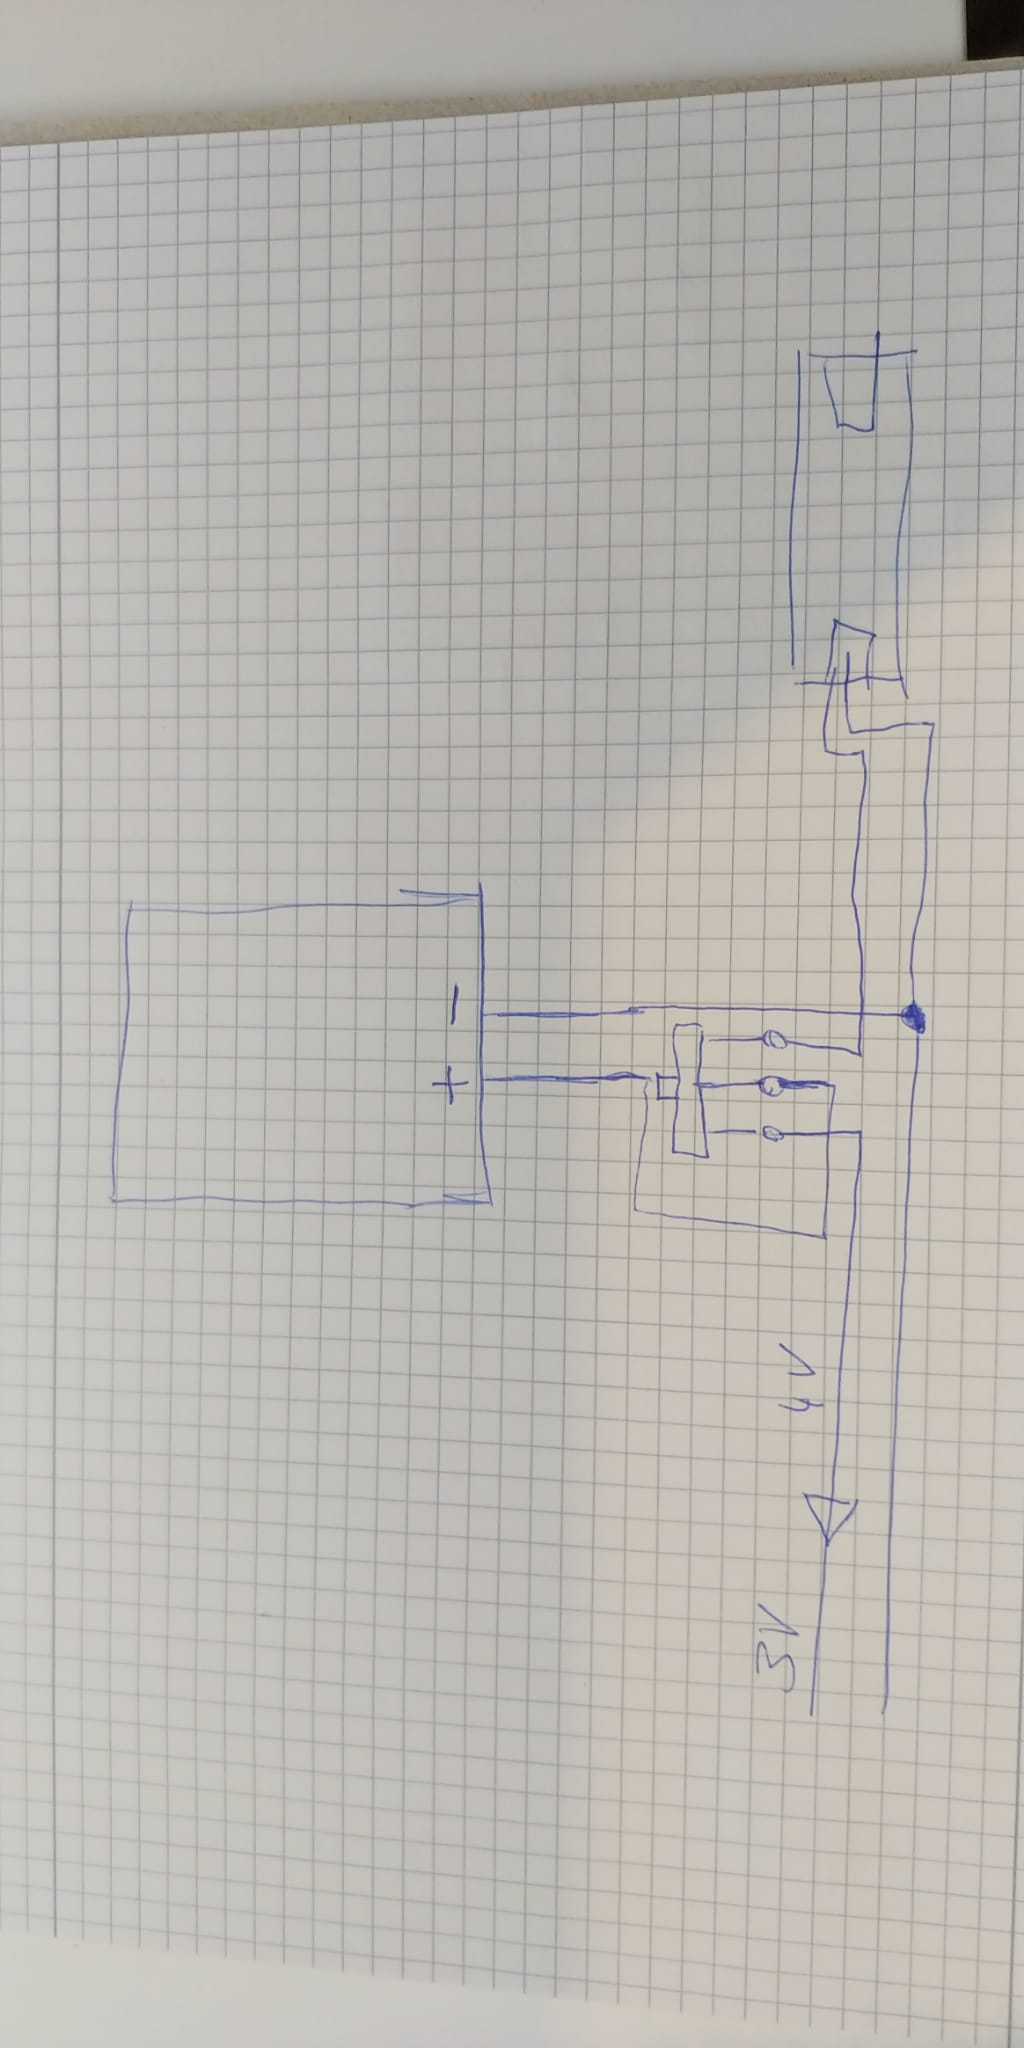 -
+
4V
3V